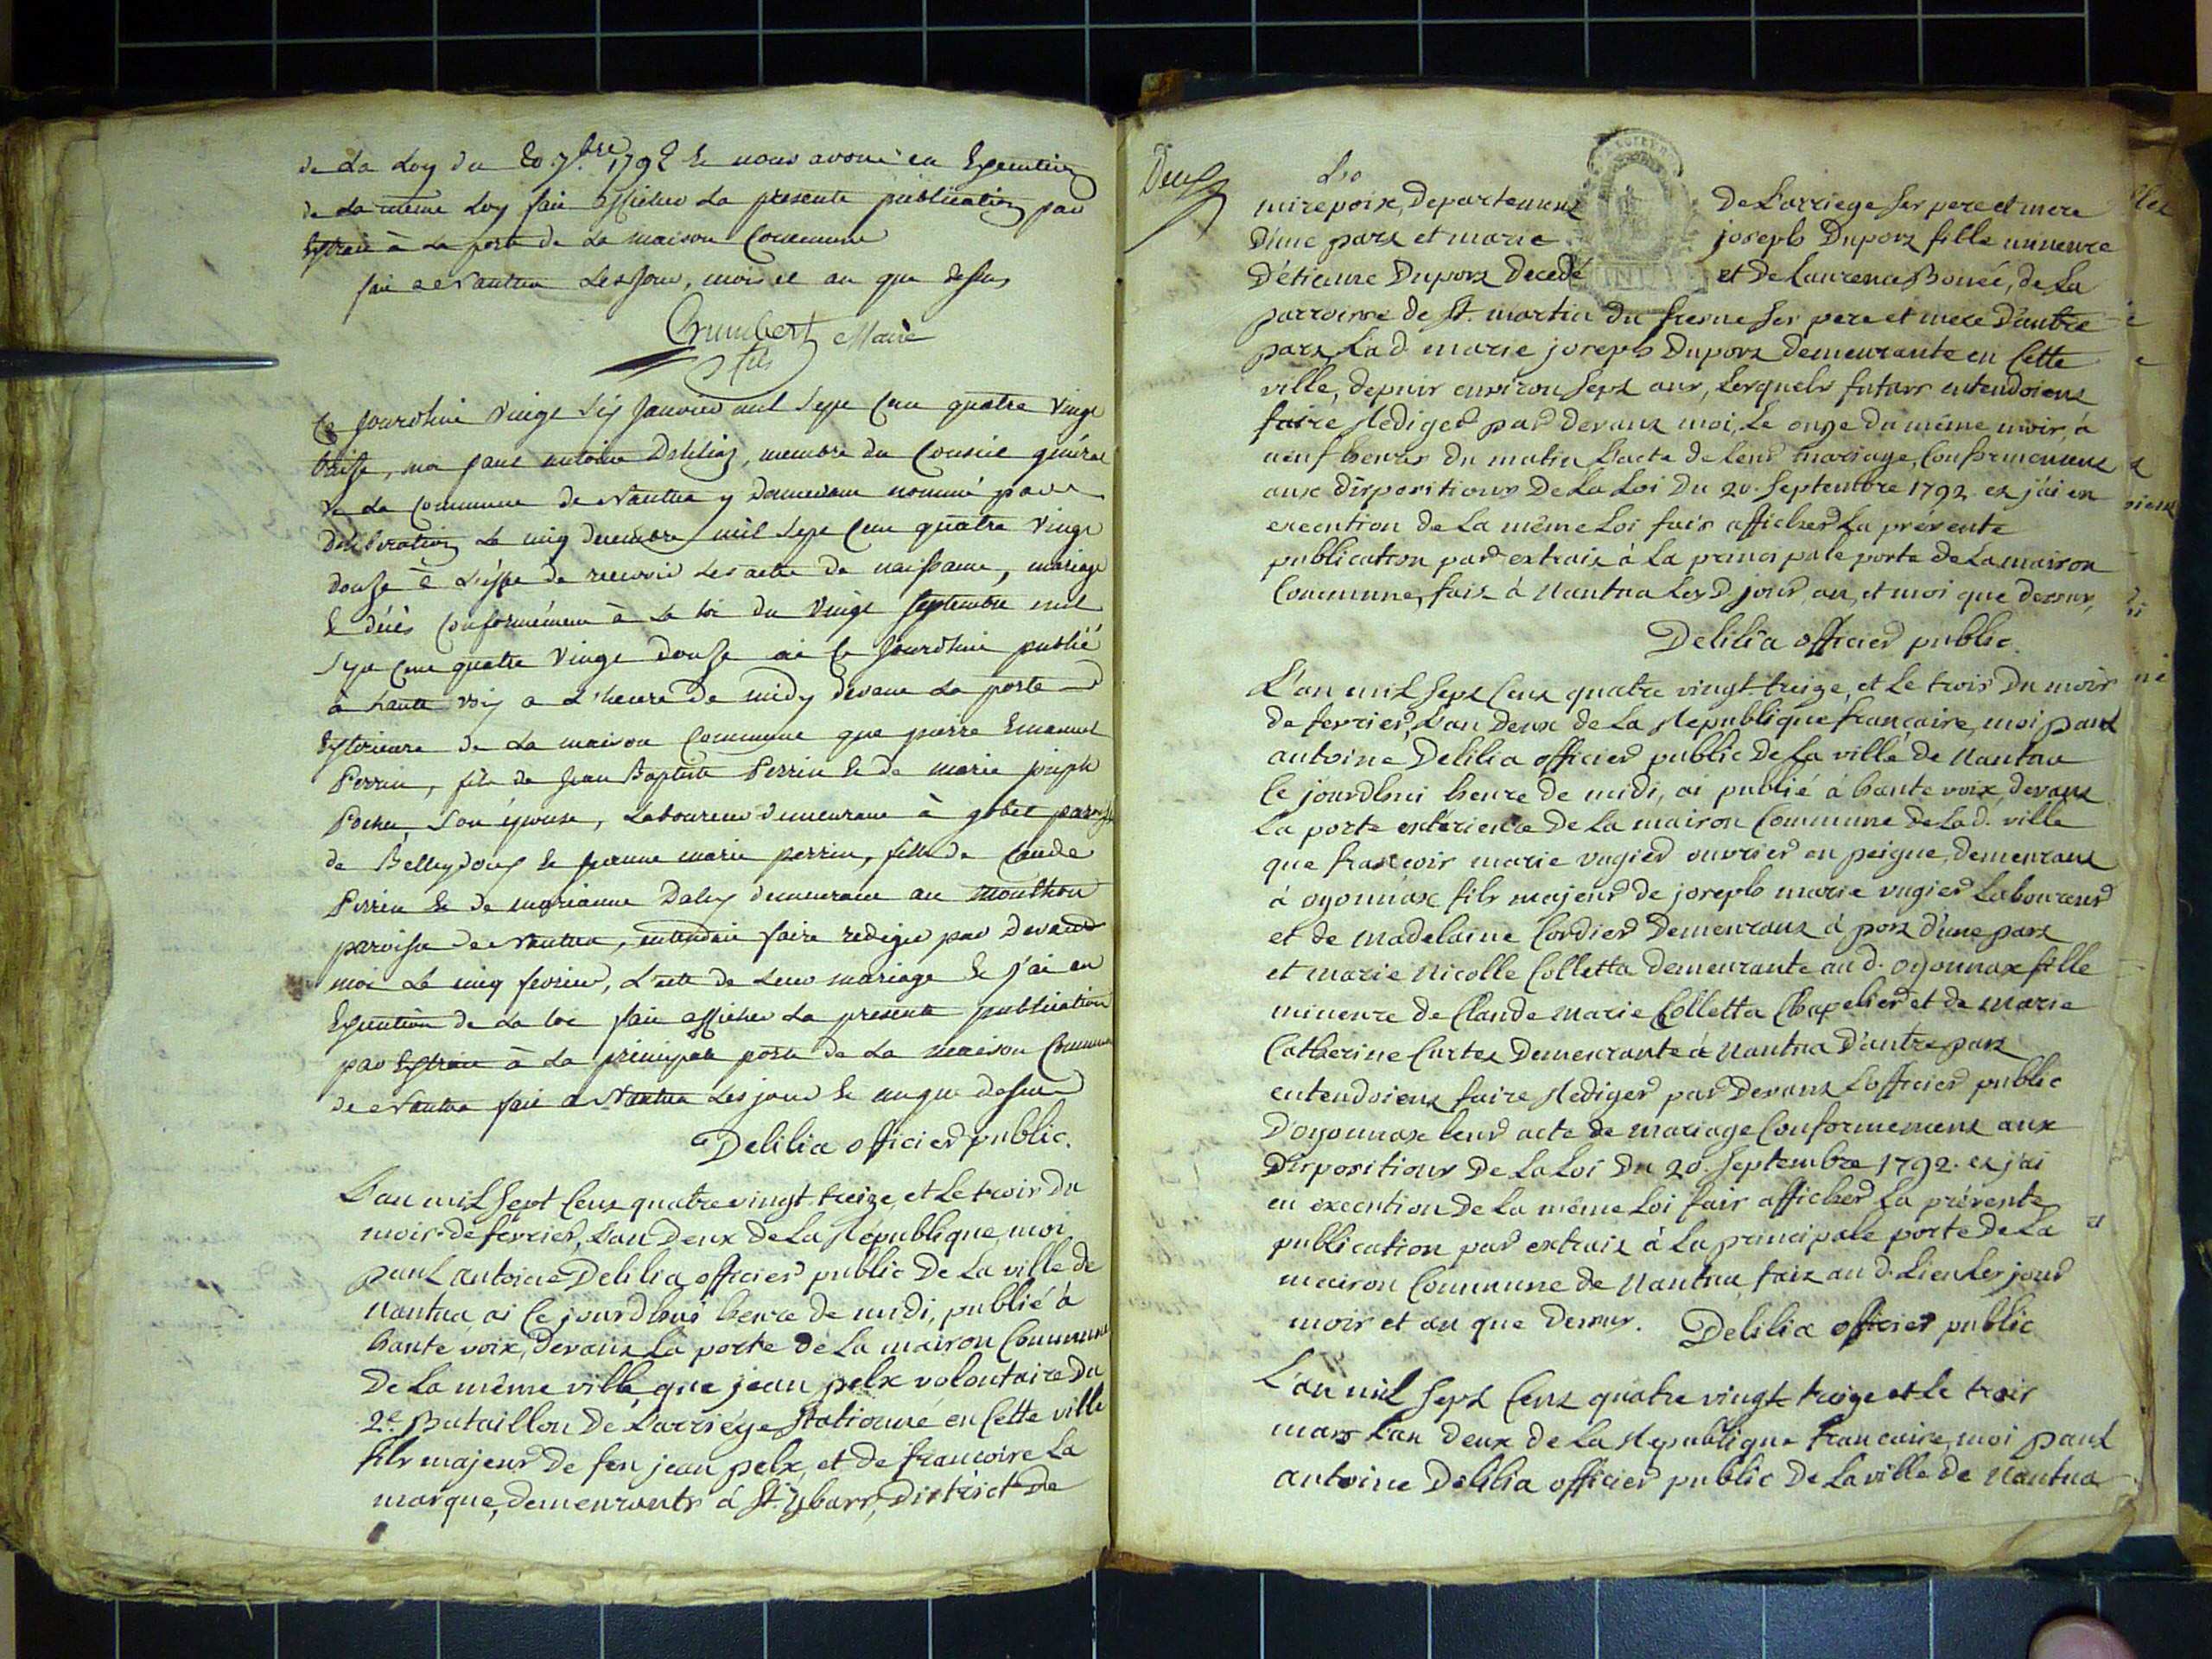 de La Loy du 20 7.bre 1792 & nous avons en Execution
de La meme Loy fait afficher La presente publication par
Extrait à La porte de La maison Commune
fait a Nantua Les Jour, mois et an que dessus
Humbert Maire
fils
Ce Jourdhui vingt six Janvier mil Sept Cent quatre vingt
treise, moi paul antoine Delilia, membre du Conseil général
de La Commune de Nantua y demeurant nommé par
Deliberation Le cinq decembre mil Sept Cent quatre vingt
douse à L'effet de recevoir Les actes de naissance, mariage
& décès Conformément à La loi du vingt Septembre mil
Sept Cent quatre vingt douse ai Ce Jourdhui publié
à haute voix a L'heure de midy devant La porte
Exterieure de La maison Commune que pierre Emanuel
Perrin, fils de Jean Baptiste Perrin & de marie joseph
Pochet, Son épouse, Laboureur demeurant à gobet paroisse
de Belleydoux & jeanne marie perrin, fille de Claude
Perrin & de marianne Daley demeurant au mouthon
paroisse de Nantua, entendait faire rediger par Devant
moi Le cinq fevrier, L'acte de Leur mariage & j'ai en
Execution de La loi fait afficher La presente publication
par Extrait à La principale porte de La maison Commune
de Nantua fait a Nantua Les jour & an que dessus
Delilia officier public.
L'an mil Sept Cent quatre vingt treize, et Le trois du
mois de fevrier, L'an Deux de La République, moi
paul antoine Delilia officier public De La ville de
Nantua, ai Ce jourdhui heure de midi, publié à
haute voix, devant La porte de La maison Commune
De La même ville, que jean pelx volontaire du
2e. Bataillon De L'arriége Stationné en Cette ville
fils majeur De feu jean pelx, et de francoise La
marque, demeurants à St. ybars, District de
Deux
Mirepoix, Departement De L'arriege Ses pere et mere
D'une part et marie joseph Duport fille mineure
D'étienne Duport Decedé et De Laurence Bouée, de La
parroisse de St. martin du fresne Ses pere et mere D'autre
part, Lad. marie joseph Duport demeurante en Cette
ville, depuis environ Sept ans, Lesquels futurs entendoient
faire Rediger par devant moi, Le onze du même mois, à
neuf heures du matin L'acte de Leur mariage, Conformement
aux Dispositions De La Loi Du 20. Septembre 1792. et j'ai en
execution de La même Loi fait afficher La présente
publication par extrait à La principale porte de La maison
Commune, fait à Nantua Lesd. jour, an, et mois que dessus,
Delilia officier public.
L'an mil Sept Cent quatre vingt treize, et Le trois Du mois
de fevrier, L'an Deux de La Republique francaise, moi paul
antoine Delilia officier public De La ville de Nantua
Ce jourdhui heure de midi, ai publié à haute voix, devant
La porte exterieure De La maison Commune de Lad. ville
que francois marie vugier ouvrier en peigne, demeurant
à oyonnax fils majeur de joseph marie vugier Laboureur
et de Madelaine Cordier Demeurant à port D'une part
et marie Nicolle Colletta demeurante aud. oyonnax fille
mineure de Claude Marie Colletta Chapelier et de Marie
Catherine Curtet Demeurante à Nantua D'autre part
entendoient faire Rediger par Devant L'officier public
D'oyonnax leur acte de mariage Conformement aux
Dispositions De La Loi Du 20. Septembre 1792. et j'ai
en execution De La même Loi fait afficher La présente
publication par extrait à La principale porte De La
maison Commune de Nantua, fait aud. Lieu Les jour
mois et an que Dessus. Delilia officier public
L'an mil Sept Cent quatre vingt treize et Le trois
mars L'an Deux de La Republique francaise, moi paul
antoine Delilia officier public De La ville de Nantua